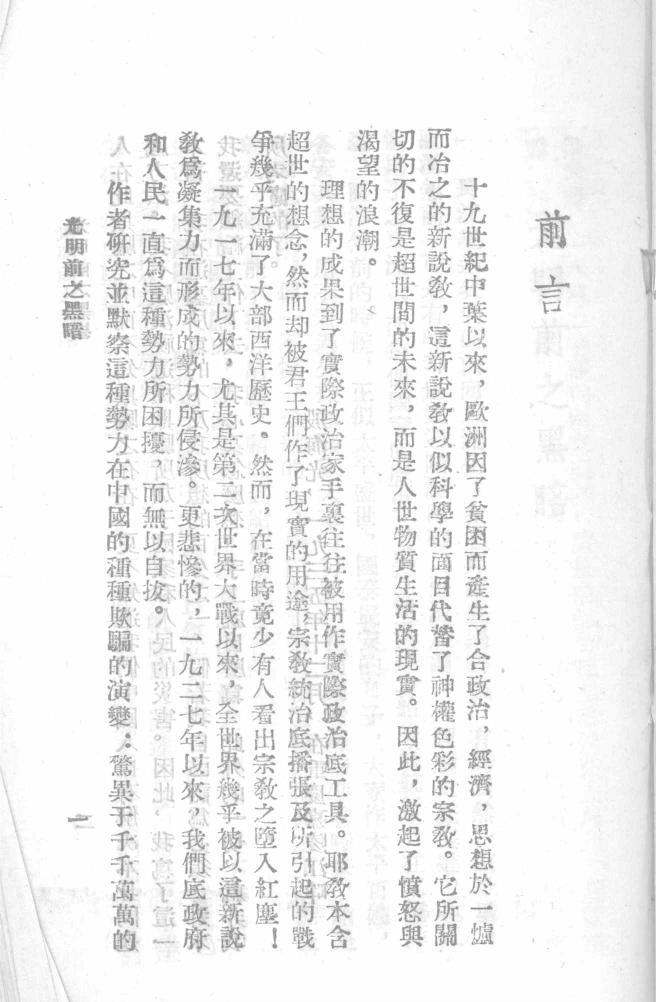 前言
十九世紀中葉以來，歐洲因了貧困而產生了合政治，經濟，思想於一爐
而冶之的新說敎，這新說敎以似科學的面目代替了神權色彩的宗敎。它所關
切的不復是超世間的未來，而是人世物質生活的現實。因此，激起了憤怒與
渴望的浪潮。
理想的成果到了實際政治家手裏往往被用作實際政治底工具。耶敎本含
超世的想念，然而却被君王們作了現實的用途，宗敎統治底播張及所引起的戰
爭幾乎充滿了大部西洋歷史。然而，在當時竟少有人看出宗敎之墮入紅塵！
一九一七年以來，尤其是第二次世界大戰以來，全世界幾乎被以這新說
敎爲凝集力而形成的勢力所侵滲。更悲慘的，一九二七年以來，我們底政府
和人民一直爲這種勢力所困擾，而無以自拔。
作者研究並默察這種勢力在中國的種種欺騙的演變：驚異于千千萬萬的
光明前之黑暗
一